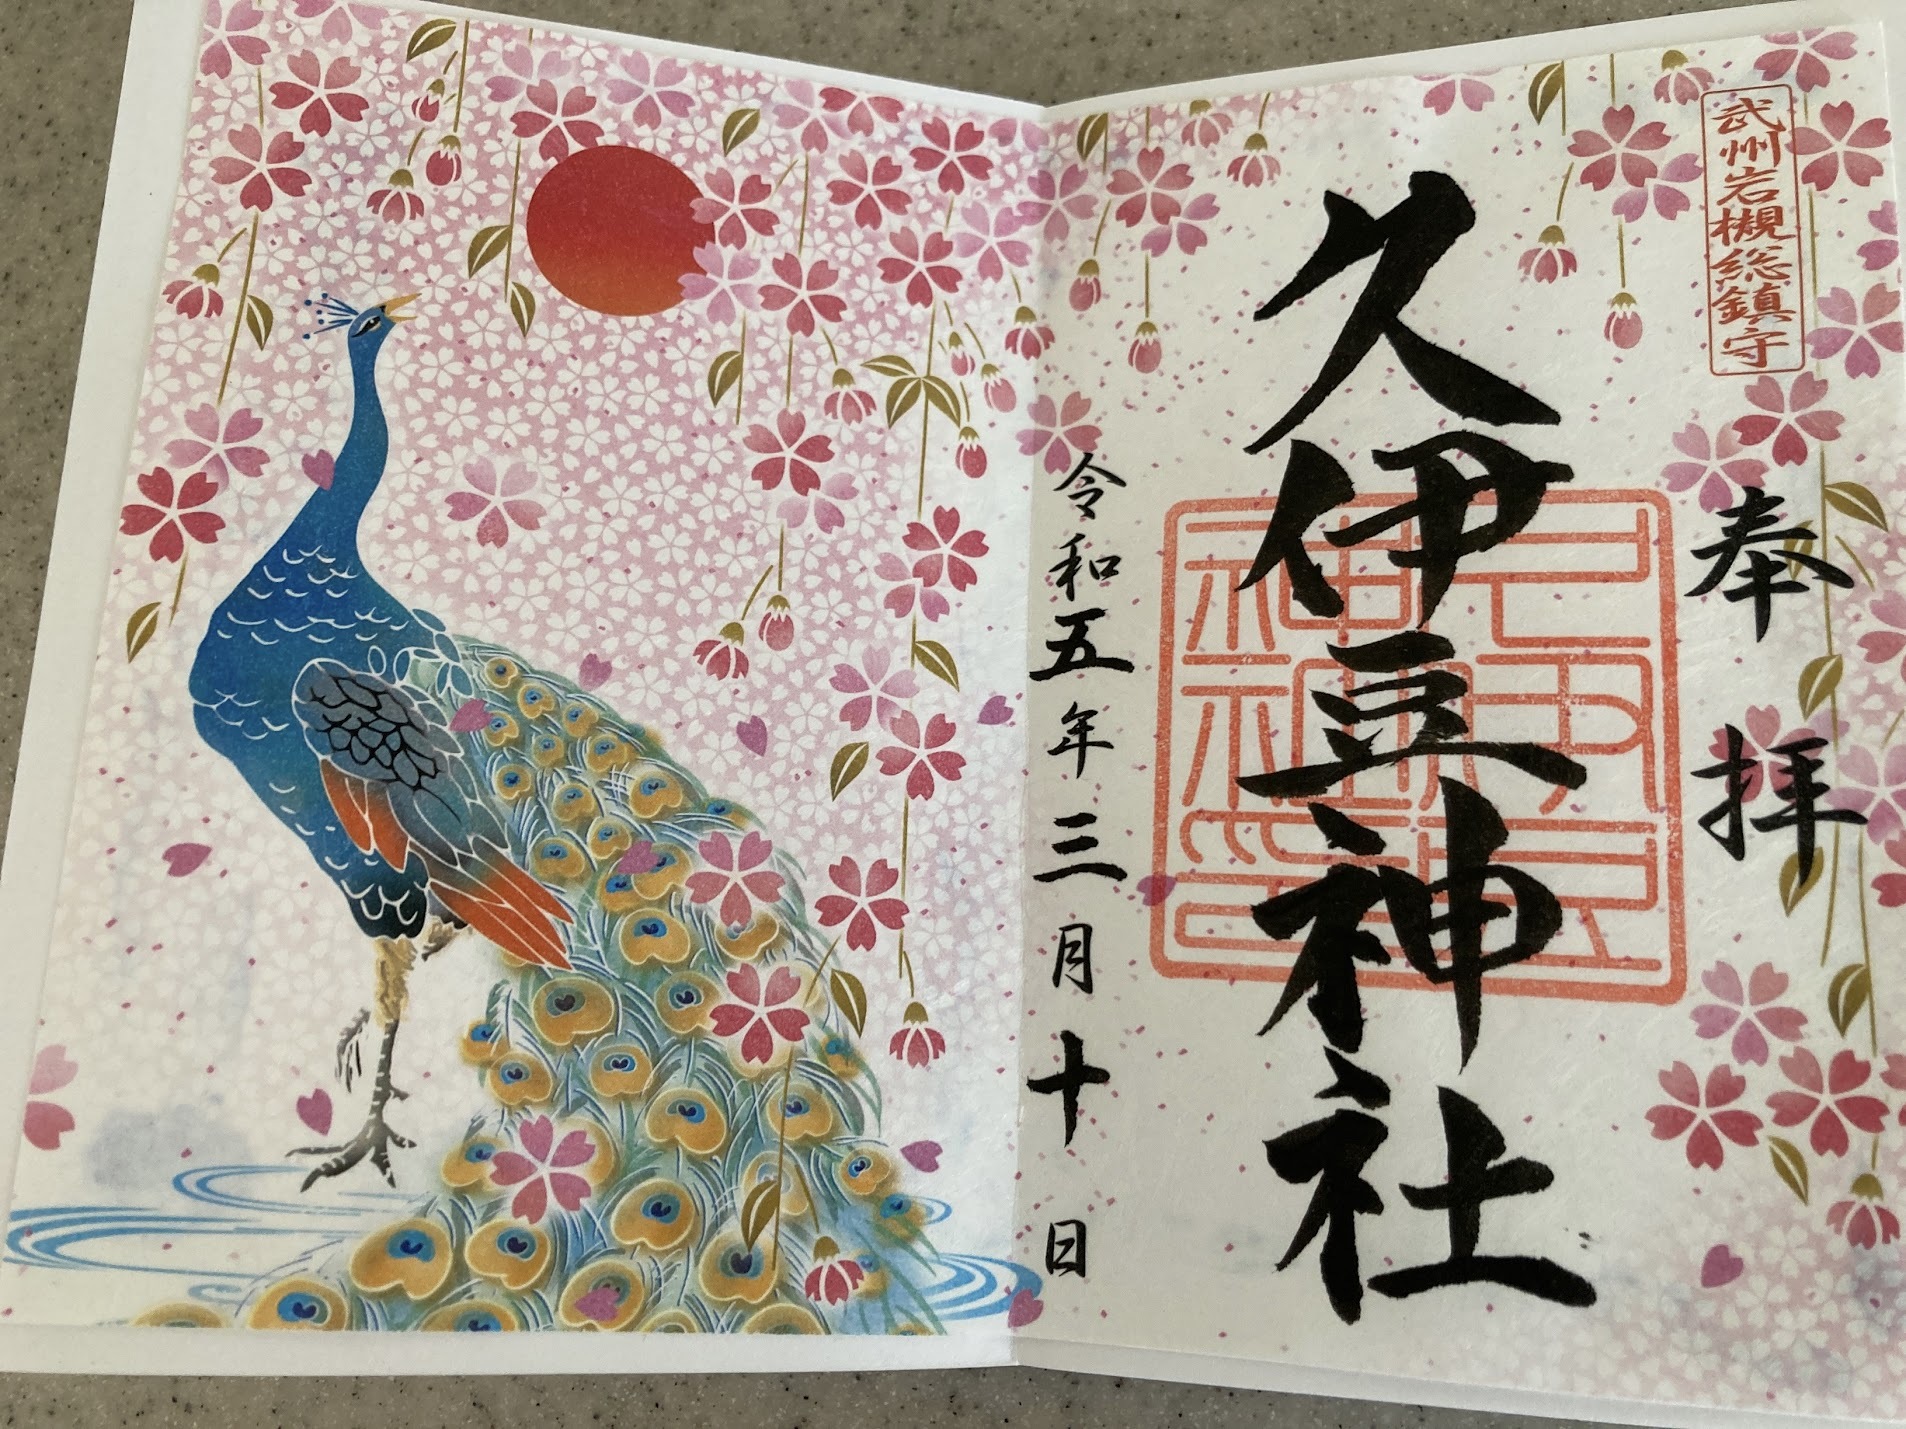 武州岩槻総鎮守
奉拝
久伊豆神社
令和五年三月十日